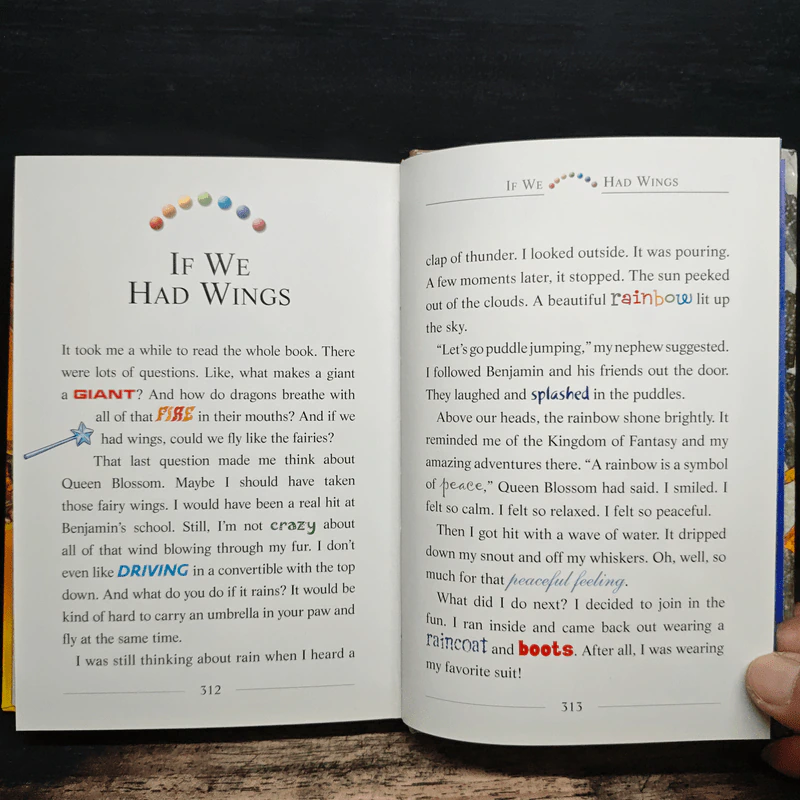 IF WE
HAD WINGS
It took me a while to read the whole book. There
were lots of questions. Like, what makes a giant
a GIANT? And how do dragons breathe with
all of that FIRE in their mouths? And if we
had wings, could we fly like the fairies?
That last question made me think about
Queen Blossom. Maybe I should have taken
those fairy wings. I would have been a real hit at
Benjamin's school. Still, I'm not crazy about
all of that wind blowing through my fur. I don't
even like DRIVING in a convertible with the top
down. And what do you do if it rains? It would be
kind of hard to carry an umbrella in your paw and
fly at the same time.
I was still thinking about rain when I heard a
312
IF WE HAD WINGS
clap of thunder. I looked outside. It was pouring.
A few moments later, it stopped. The sun peeked
out of the clouds. A beautiful rainbow lit up
the sky.
"Let's go puddle jumping," my nephew suggested.
I followed Benjamin and his friends out the door.
They laughed and splashed in the puddles.
Above our heads, the rainbow shone brightly. It
reminded me of the Kingdom of Fantasy and my
amazing adventures there. "A rainbow is a symbol
of peace," Queen Blossom had said. I smiled. I
felt so calm. I felt so relaxed. I felt so peaceful.
Then I got hit with a wave of water. It dripped
down my snout and off my whiskers. Oh, well, so
much for that peaceful feeling.
What did I do next? I decided to join in the
fun. I ran inside and came back out wearing a
raincoat and boots. After all, I was wearing
my favorite suit!
313